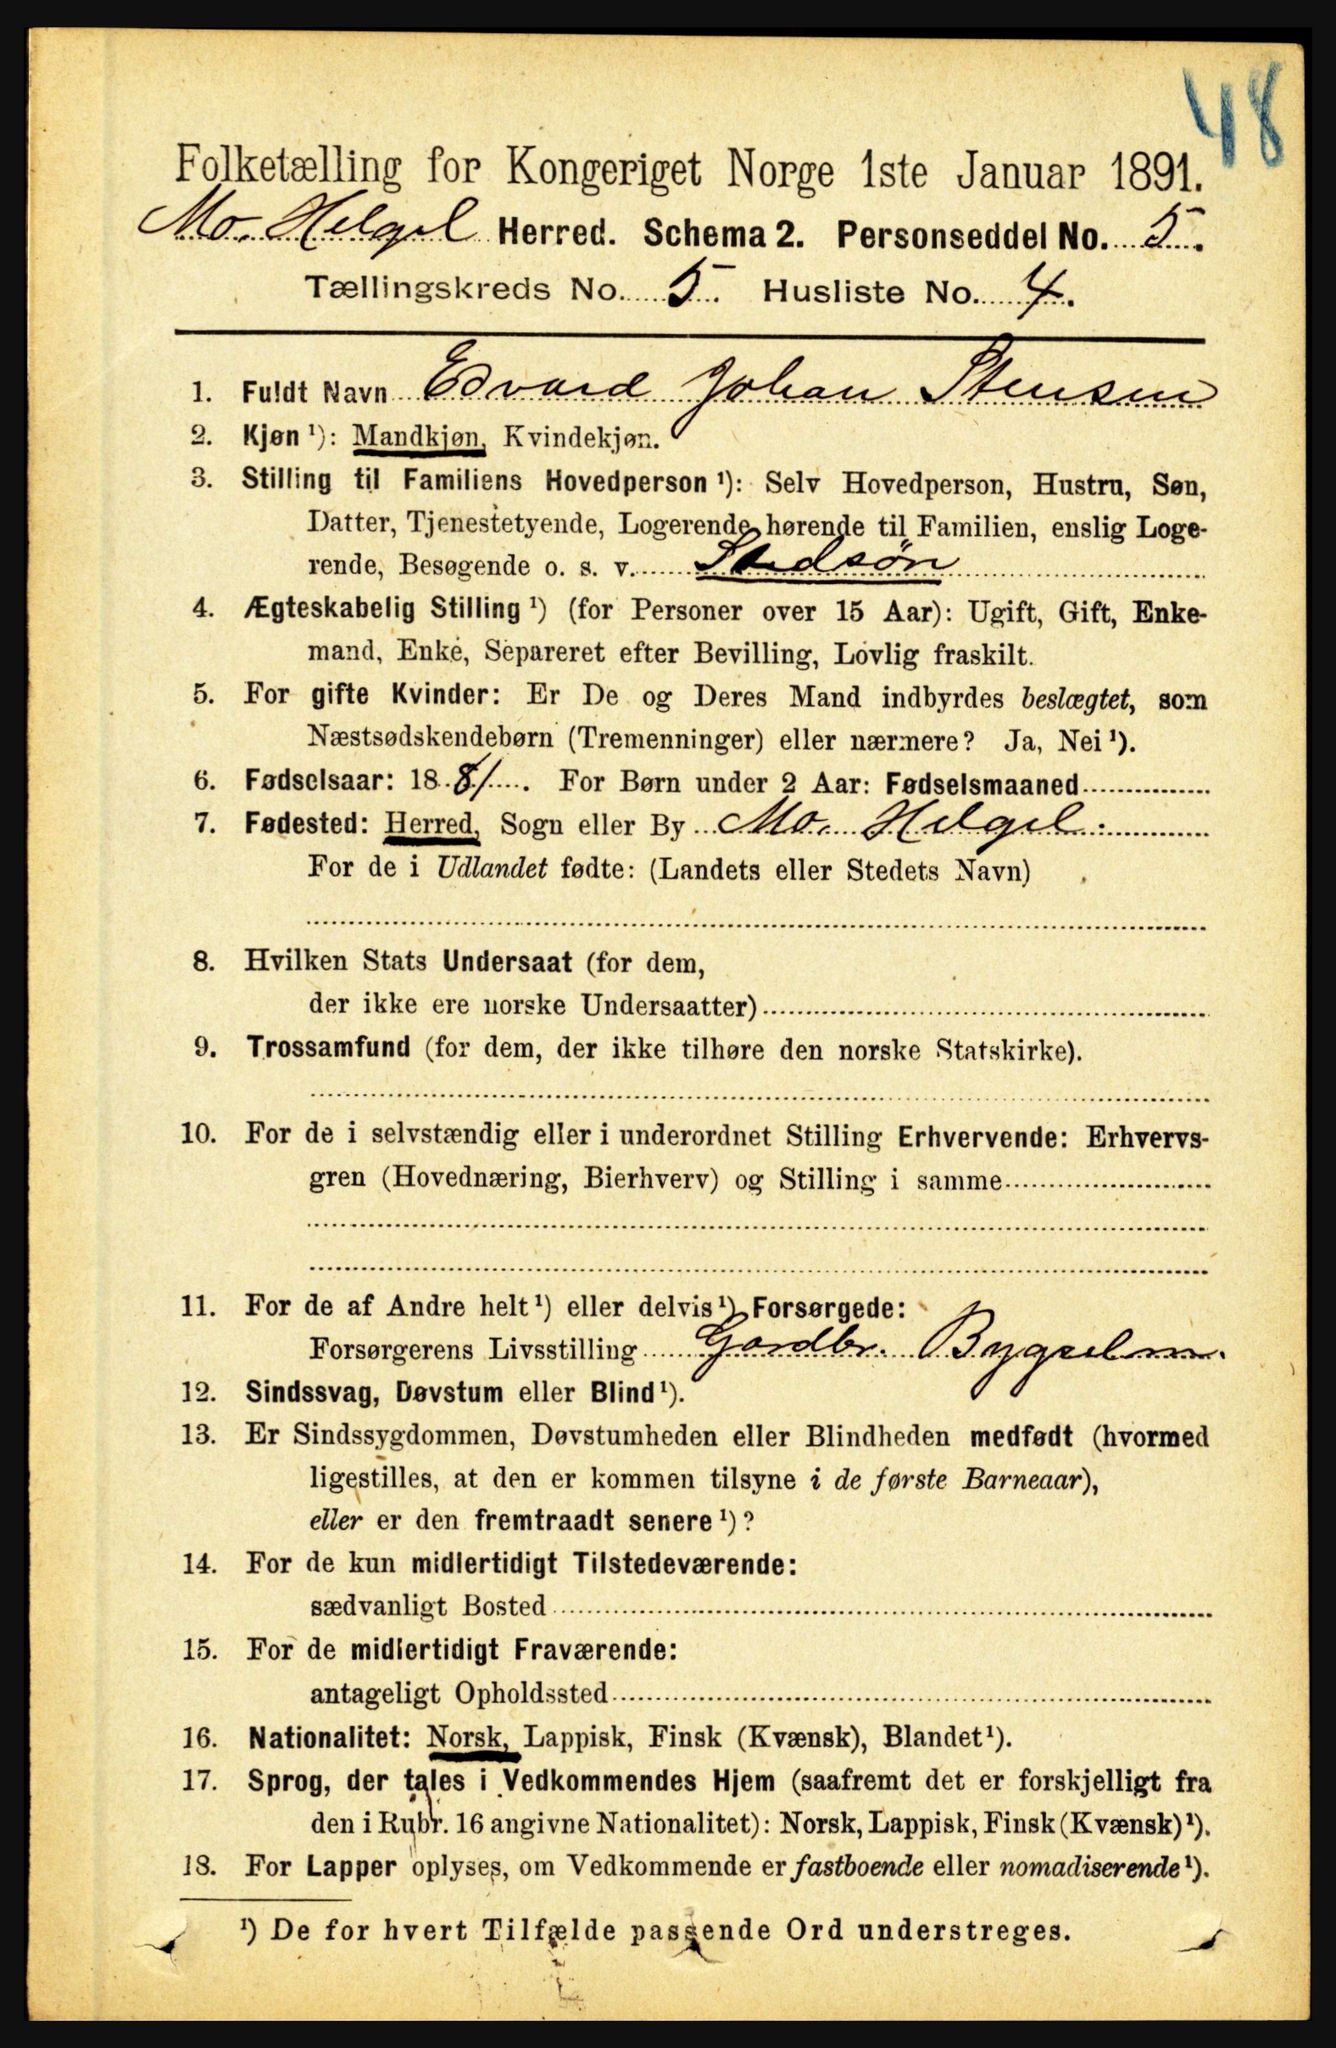 48
Folketælling for Kongeriget Norge 1ste Januar 1891.
Mo. Helgel Herred. Schema 2. Personseddel No. 5.
Tællingskreds No. 5. Husliste No. 4.
1. Fuldt Navn Edvard Johan Stensen
2. Kjøn ¹): Mandkjøn, Kvindekjøn.
3. Stilling til Familiens Hovedperson ¹): Selv Hovedperson, Hustru, Søn,
Datter, Tjenestetyende, Logerende hørende til Familien, enslig Loge-
rende, Besøgende o. s. v. Stedsøn
4. Ægteskabelig Stilling ¹) (for Personer over 15 Aar): Ugift, Gift, Enke-
mand, Enke, Separeret efter Bevilling, Lovlig fraskilt.
5. For gifte Kvinder: Er De og Deres Mand indbyrdes beslægtet, som
Næstsødskendebørn (Tremenninger) eller nærmere? Ja, Nei ¹).
6. Fødselsaar: 1881. For Børn under 2 Aar: Fødselsmaaned
7. Fødested: Herred, Sogn eller By Mo. Helgel.
For de i Udlandet fødte: (Landets eller Stedets Navn)
8. Hvilken Stats Undersaat (for dem,
der ikke ere norske Undersaatter)
9. Trossamfund (for dem, der ikke tilhøre den norske Statskirke).
10. For de i selvstændig eller i underordnet Stilling Erhvervende: Erhvervs-
gren (Hovednæring, Bierhverv) og Stilling i samme
11. For de af Andre helt ¹) eller delvis ¹) Forsørgede:
Forsørgerens Livsstilling Gardbr. Bygselm.
12. Sindssvag, Døvstum eller Blind ¹).
13. Er Sindssygdommen, Døvstumheden eller Blindheden medfødt (hvormed
ligestilles, at den er kommen tilsyne i de første Barneaar),
eller er den fremtraadt senere ¹)?
14. For de kun midlertidigt Tilstedeværende:
sædvanligt Bosted
15. For de midlertidigt Fraværende:
antageligt Opholdssted
16. Nationalitet: Norsk, Lappisk, Finsk (Kvænsk), Blandet ¹).
17. Sprog, der tales i Vedkommendes Hjem (saafremt det er forskjelligt fra
den i Rubr. 16 angivne Nationalitet): Norsk, Lappisk, Finsk (Kvænsk) ¹).
18. For Lapper oplyses, om Vedkommende er fastboende eller nomadiserende ¹).
¹) De for hvert Tilfælde passende Ord understreges.